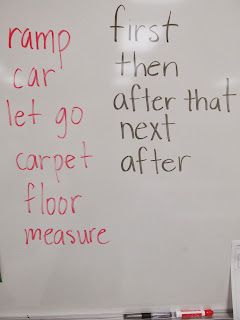 ramp
car
let go
carpet
floor
measure
first
then
after that
next
after